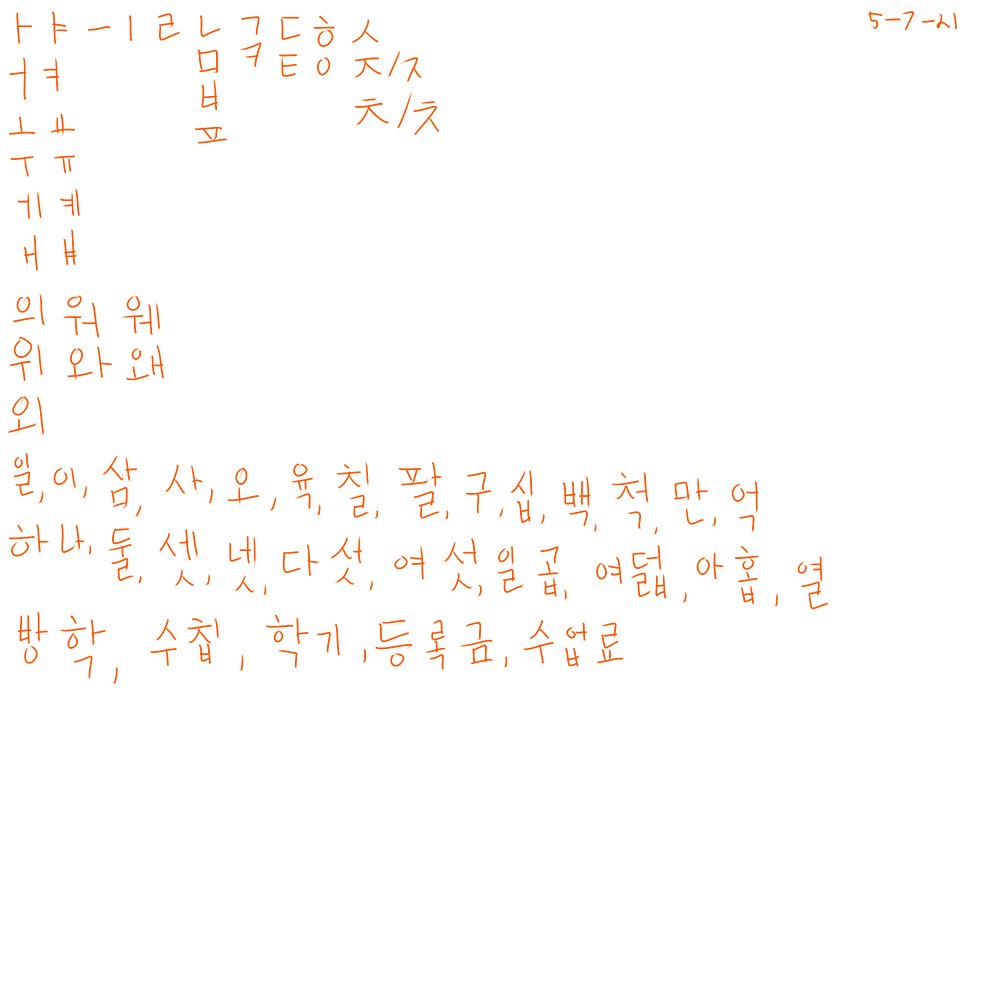 ㅏ ㅑ ㅡ ㅣ ㄹ ㄴ ㄱ ㄷ ㅎ ㅅ 5-7-21
ㅓ ㅕ ㅁ ㅋ ㅌ ㅇ ㅈ/ㅈ
ㅂ ㅊ/ㅊ
ㅗ ㅛ ㅍ
ㅜ ㅠ
ㅔ ㅖ
ㅐ ㅒ
의 워 웨
위 와 왜
외
일, 이, 삼, 사, 오, 육, 칠, 팔, 구, 십, 백, 척, 만, 억
하나, 둘, 셋, 넷, 다섯, 여섯, 일곱, 여덟, 아홉, 열
방학, 수첩, 학기, 등록금, 수업료